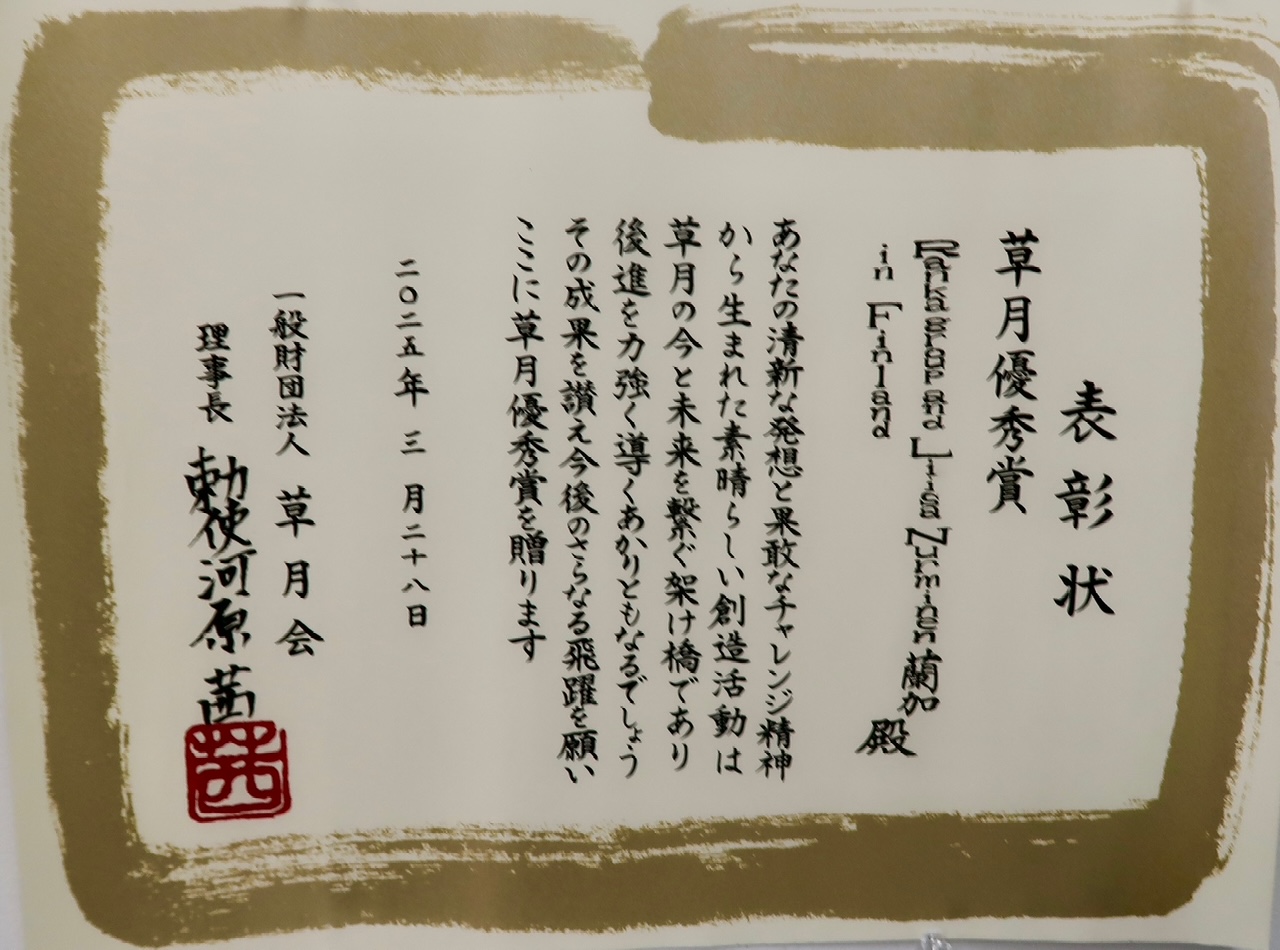 表彰状
草月優秀賞
Rankagroup and Liisa Nurminen 蘭加
in Finland
殿
あなたの清新な発想と果敢なチャレンジ精神
から生まれた素晴らしい創造活動は
草月の今と未来を繋ぐ架け橋であり
後進を力強く導くあかりともなるでしょう
その成果を讃え今後のさらなる飛躍を願い
ここに草月優秀賞を贈ります
二〇二五年三月二十八日
一般財団法人 草月会
理事長 勅使河原茜
茜